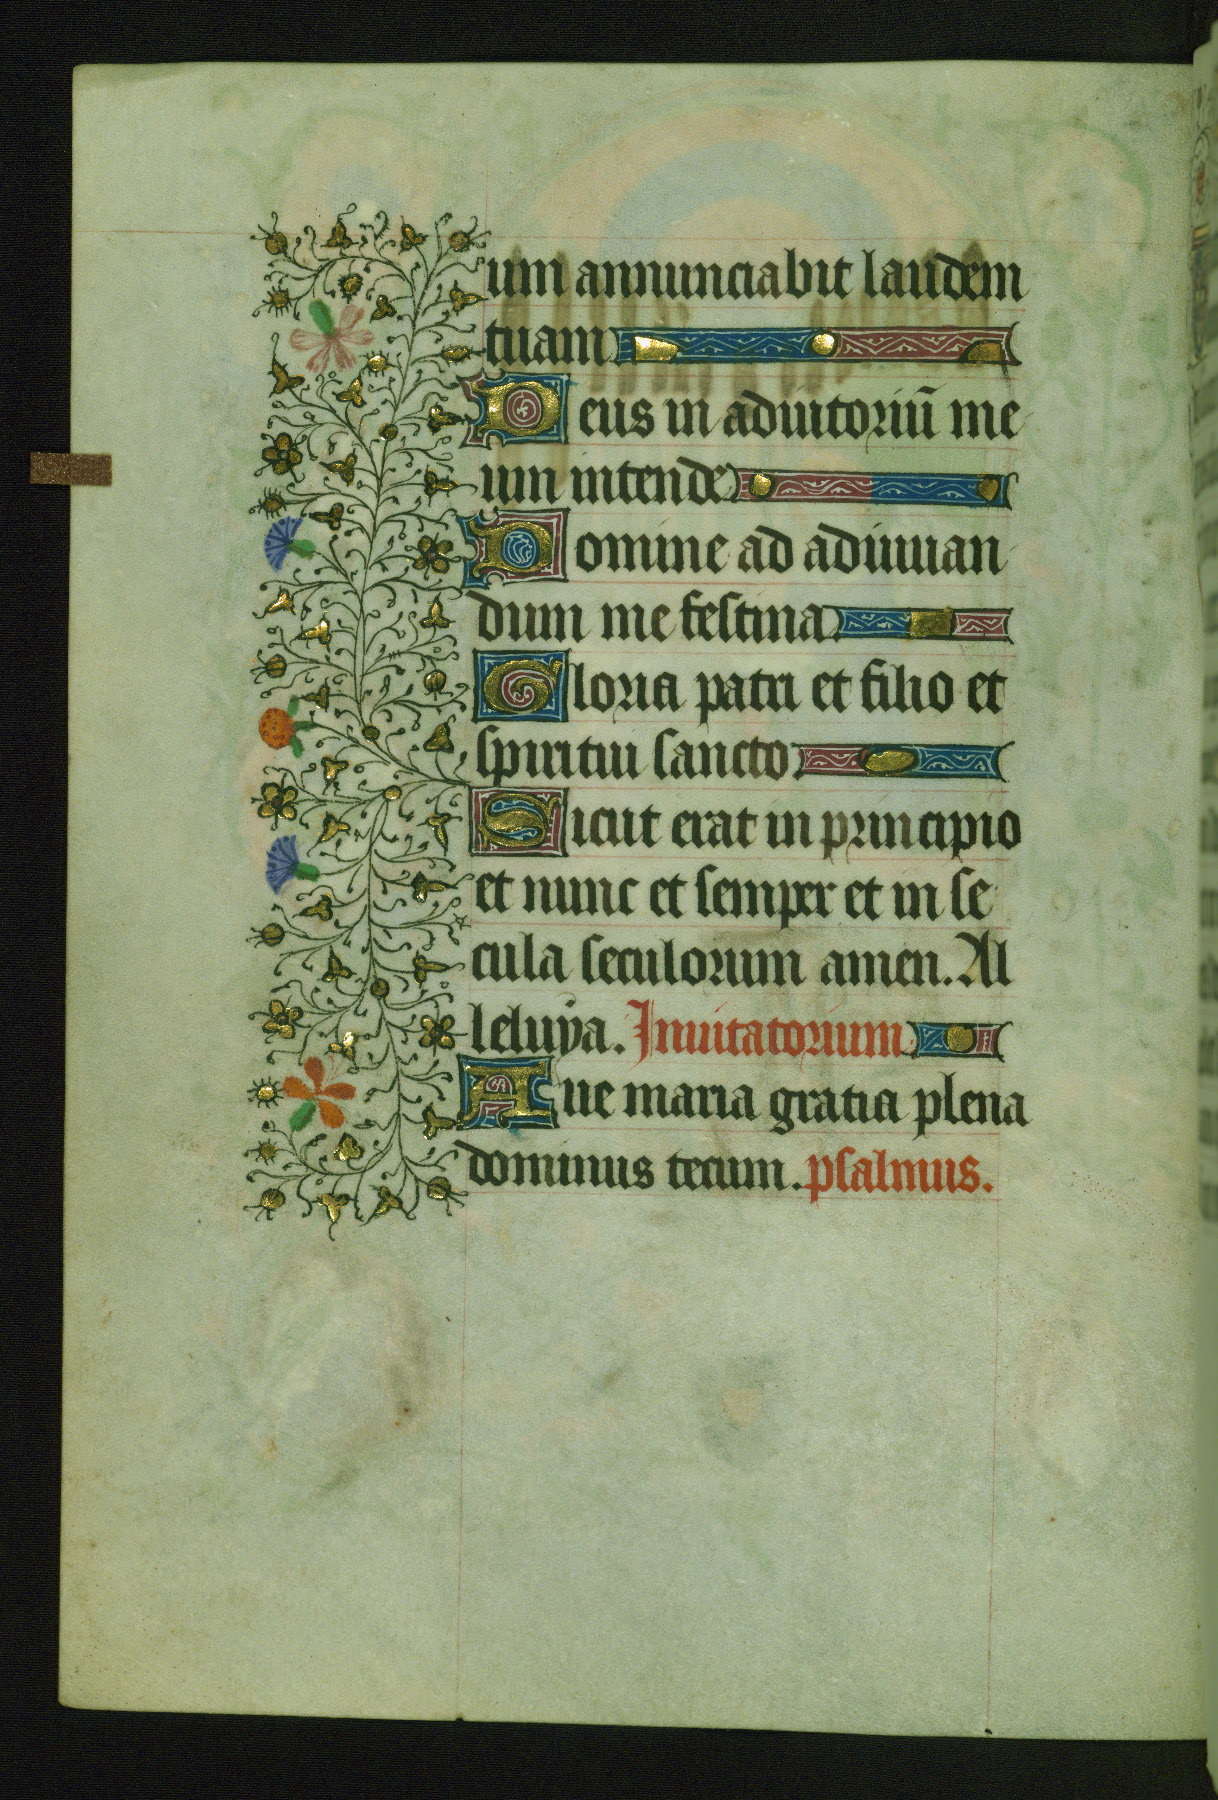 um annunciabit laudem
tuam
Deus in adiutoriū me
um intende
Domine ad adiuuan
dum me festina
Gloria patri et filio et
spiritui sancto
Sicut erat in principio
et nunc et semper et in se
cula seculorum amen. Al
leluya. Inuitatorium
Aue maria gratia plena
dominus tecum. psalmus.